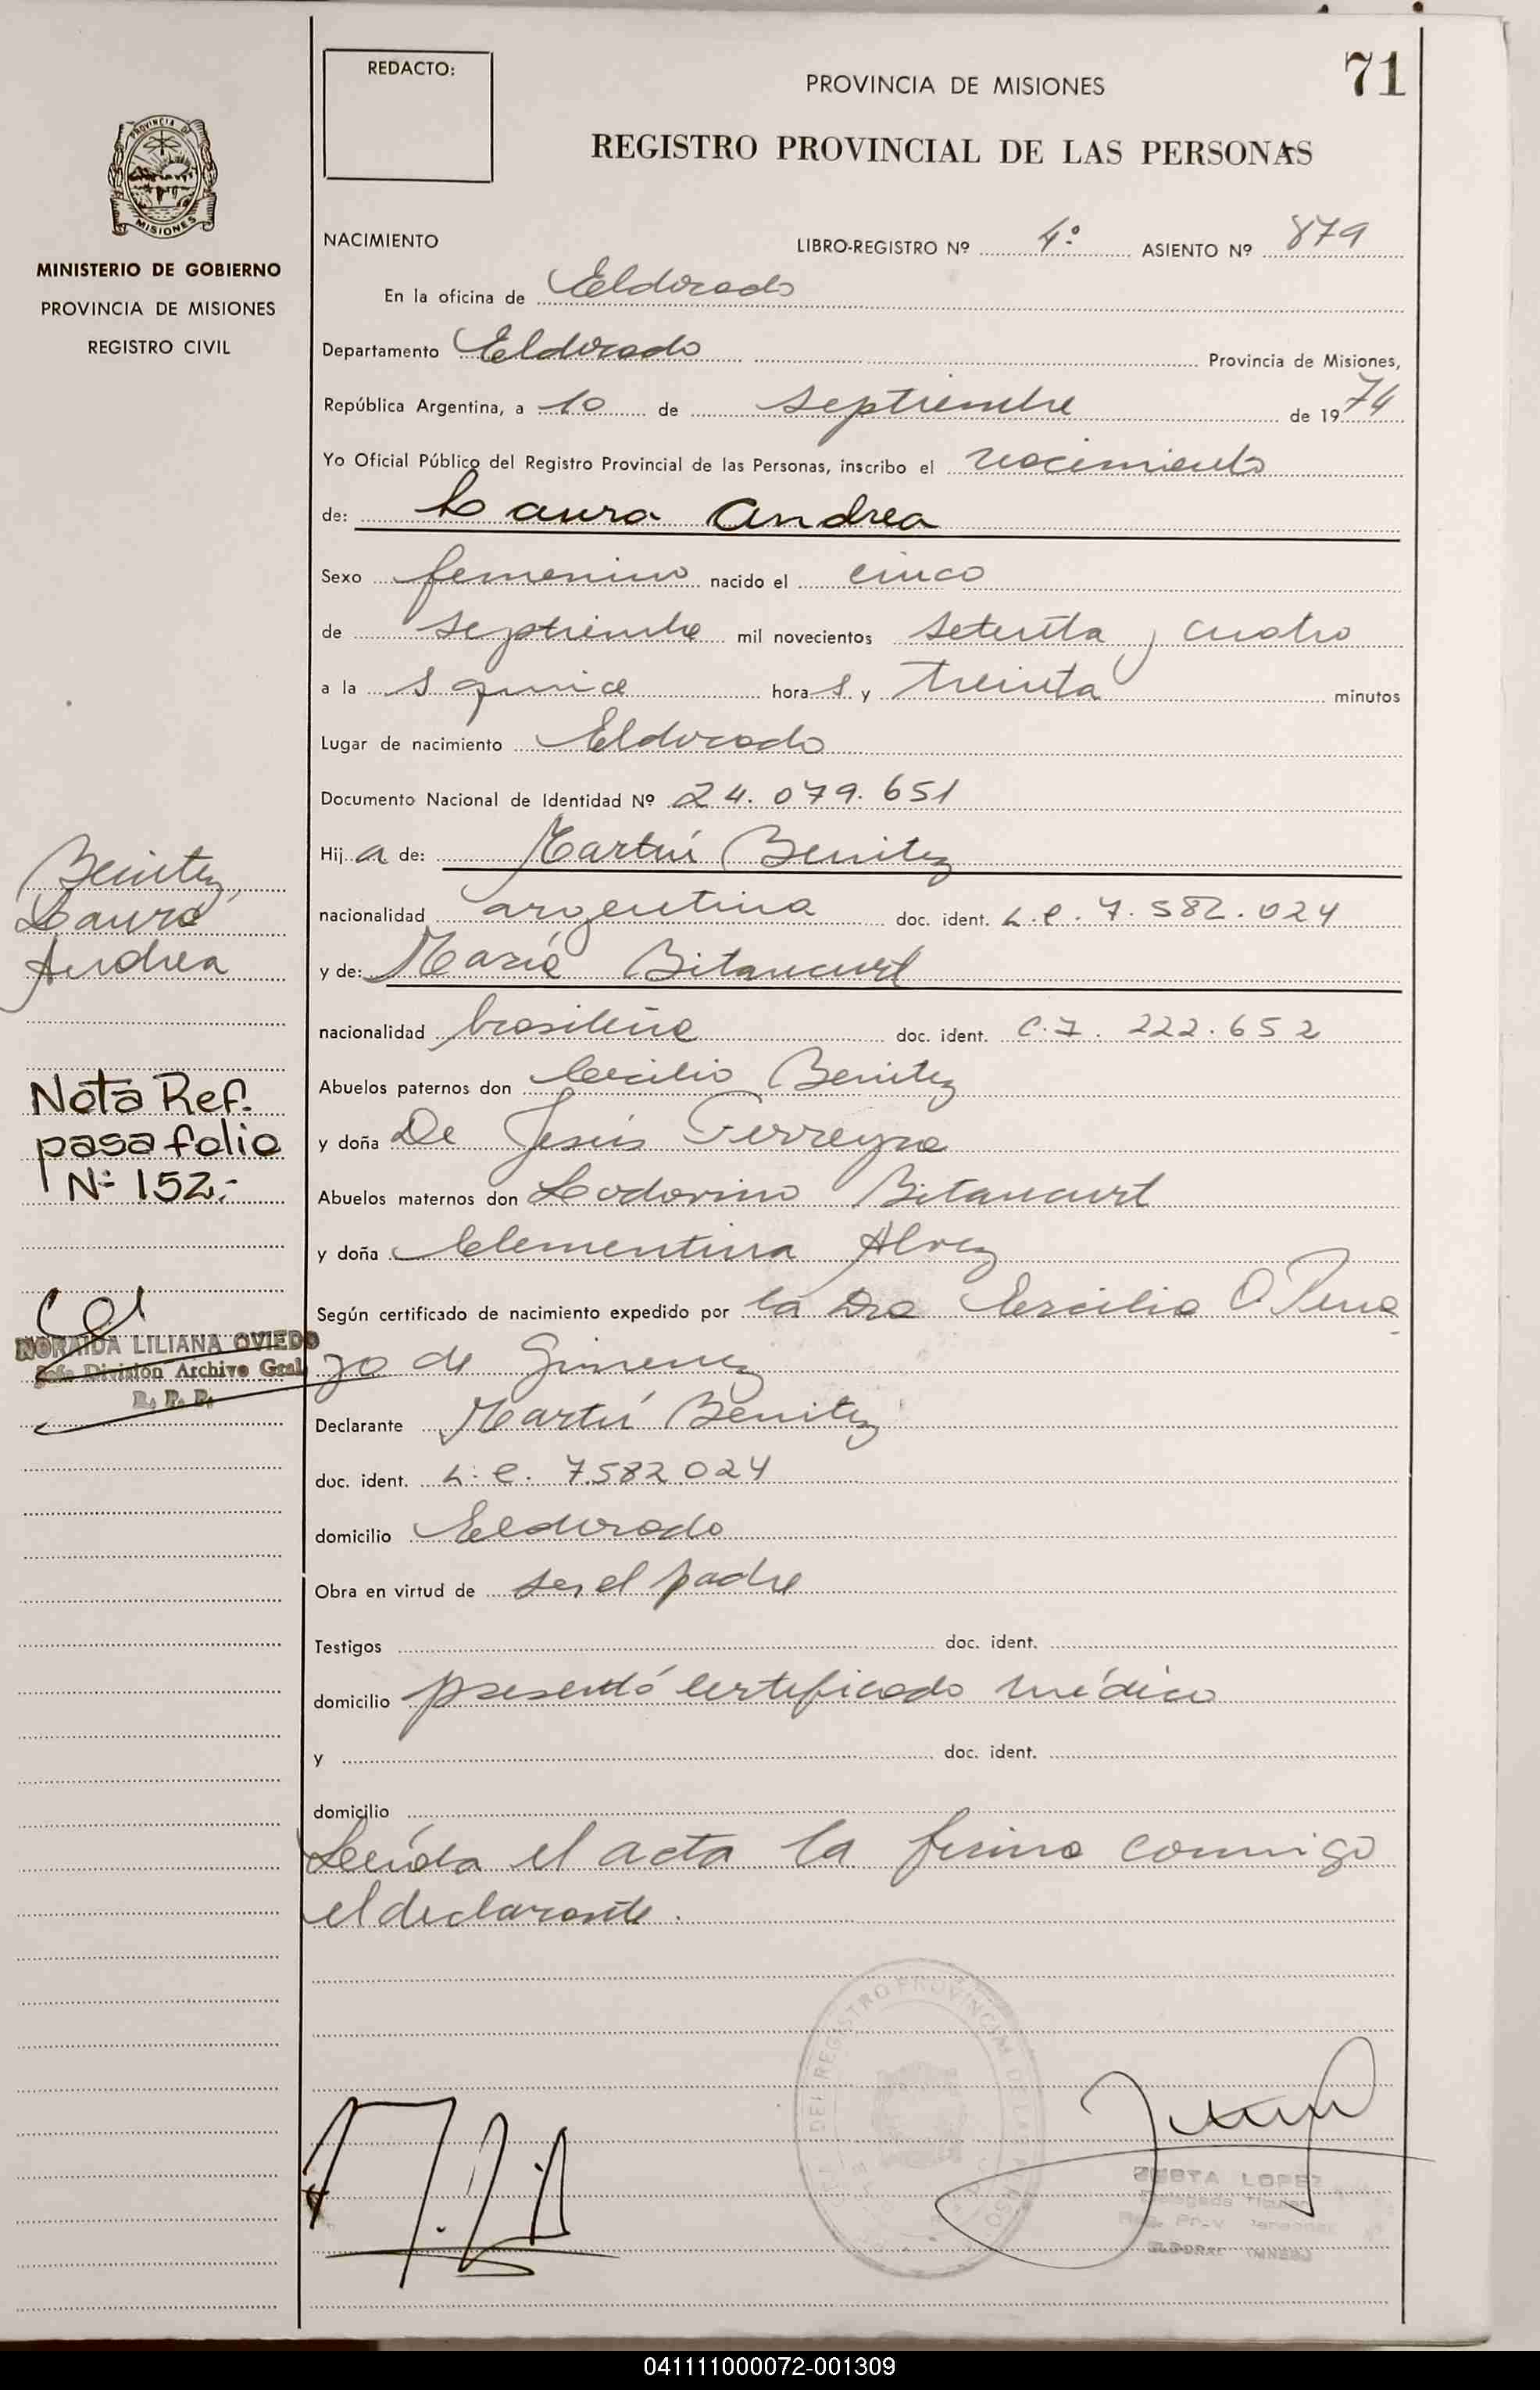 REDACTO:
PROVINCIA DE MISIONES
71
REGISTRO PROVINCIAL DE LAS PERSONAS
PROVINCIA DE
MISIONES
MINISTERIO DE GOBIERNO
PROVINCIA DE MISIONES
REGISTRO CIVIL
NACIMIENTO
LIBRO-REGISTRO Nº 4º ASIENTO Nº 879
En la oficina de Eldorado
Departamento Eldorado Provincia de Misiones,
República Argentina, a 10 de septiembre de 1974
Yo Oficial Público del Registro Provincial de las Personas, inscribo el nacimiento
de: Laura Andrea
Sexo femenino nacido el cinco
de septiembre mil novecientos setenta y cuatro
a la s quince hora s y treinta minutos
Lugar de nacimiento Eldorado
Documento Nacional de Identidad Nº 24.079.651
Hij a de: Martín Benitez
nacionalidad argentina doc. ident. L.E. 7.582.024
y de: María Bitancurt
nacionalidad brasileña doc. ident. C.I. 222.652
Abuelos paternos don Cecilio Benitez
y doña De Jesús Ferreyra
Abuelos maternos don Lodovino Bitancurt
y doña Clementina Alvez
Según certificado de nacimiento expedido por la Dra Cercilia O. Pena
zo de Gimenez
Declarante Martín Benitez
doc. ident. L.E. 7.582.024
domicilio Eldorado
Obra en virtud de ser el padre
Testigos doc. ident.
domicilio presentó certificado médico
y doc. ident.
domicilio
Leída el acta la firma conmigo
el declarante.
Benitez,
Laura
Andrea
Nota Ref.
pasa folio
Nº 152.-
NORAIDA LILIANA OVIEDO
Jefa División Archivo Gral
R. P. P.
DEL REGISTRO PROVINCIAL DE LAS PERSONAS
LOPEZ
Delegada Titular
041111000072-001309